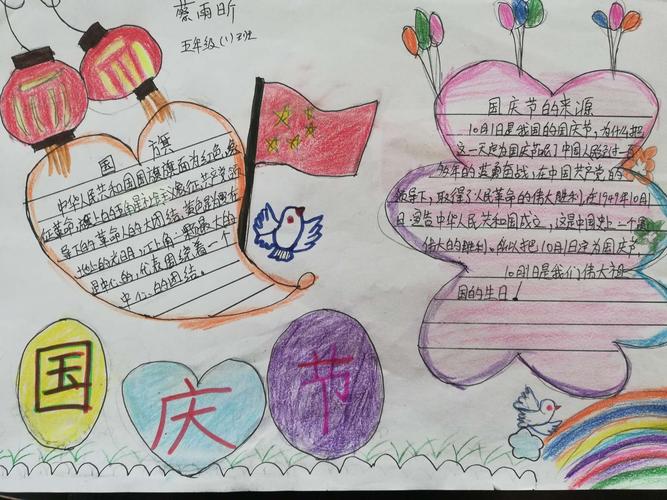 蔡雨昕
五年级(1)班
国 旗
中华人民共和国国旗旗面为红色,象
征革命,旗上的五
导下的革命人的大团结。
地上的光明,
是中心的,代表围绕着一个
中心的团结。
国庆节的来源
10月1日是我国的国庆节,为什么把
这一天定为国庆节呢?中国人民经过一百
多年的英勇奋战,在中国共产党的
领导下,取得了人民革命的伟大胜利。在1949年10月
1日,宣告中华人民共和国成立,这是中国史上一个最
伟大的胜利。所以把10月1日定为国庆节。
10月1日是我们伟大祖
国的生日!
国 庆 节